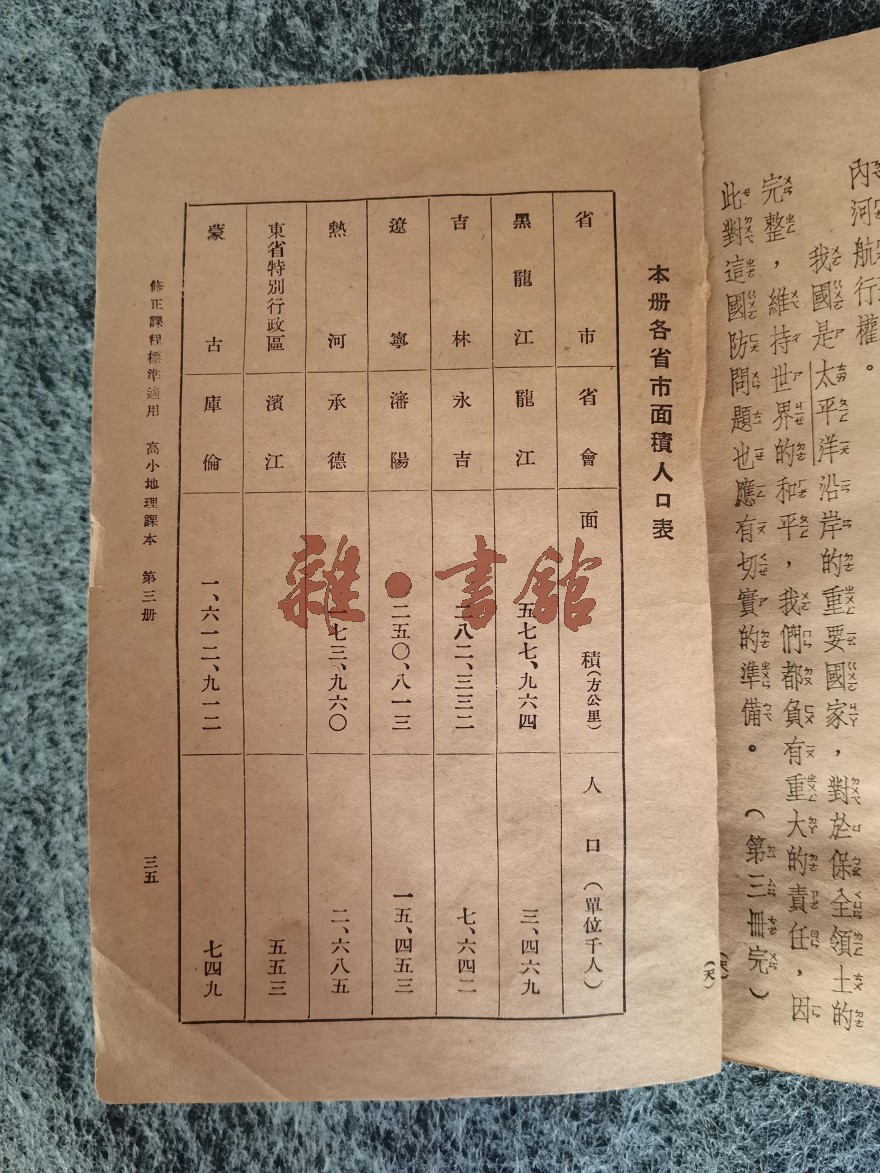 內河航行權。
我國是太平洋沿岸的重要國家，對於保全領土的
完整，維持世界的和平，我們都負有重大的責任，因
此對這國防問題也應有切實的準備。（第三冊完）
本册各省市面積人口表
省市 省會 面積（方公里） 人口（單位千人）
黑龍江 龍江 五七七、九六四 三、四六九
吉林 永吉 二八二、三三二 七、六四二
遼寧 瀋陽 二五〇、八一三 一五、四五三
熱河 承德 一七三、九六〇 二、六八五
東省特別行政區 濱江 五五三
蒙古 庫倫 一、六一二、九一二 七四九
修正課程標準適用 高小地理課本 第三册 三五
雜·書館